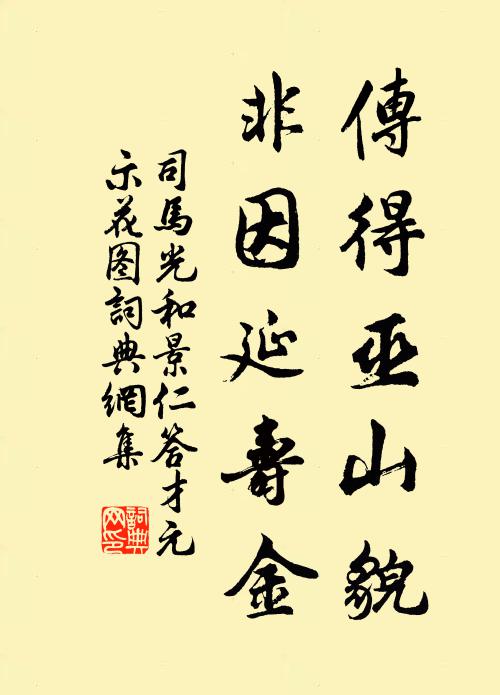 傳得巫山貌
非因延壽金
司馬光和景仁答才元
示花图詞典網集
詞典
网印